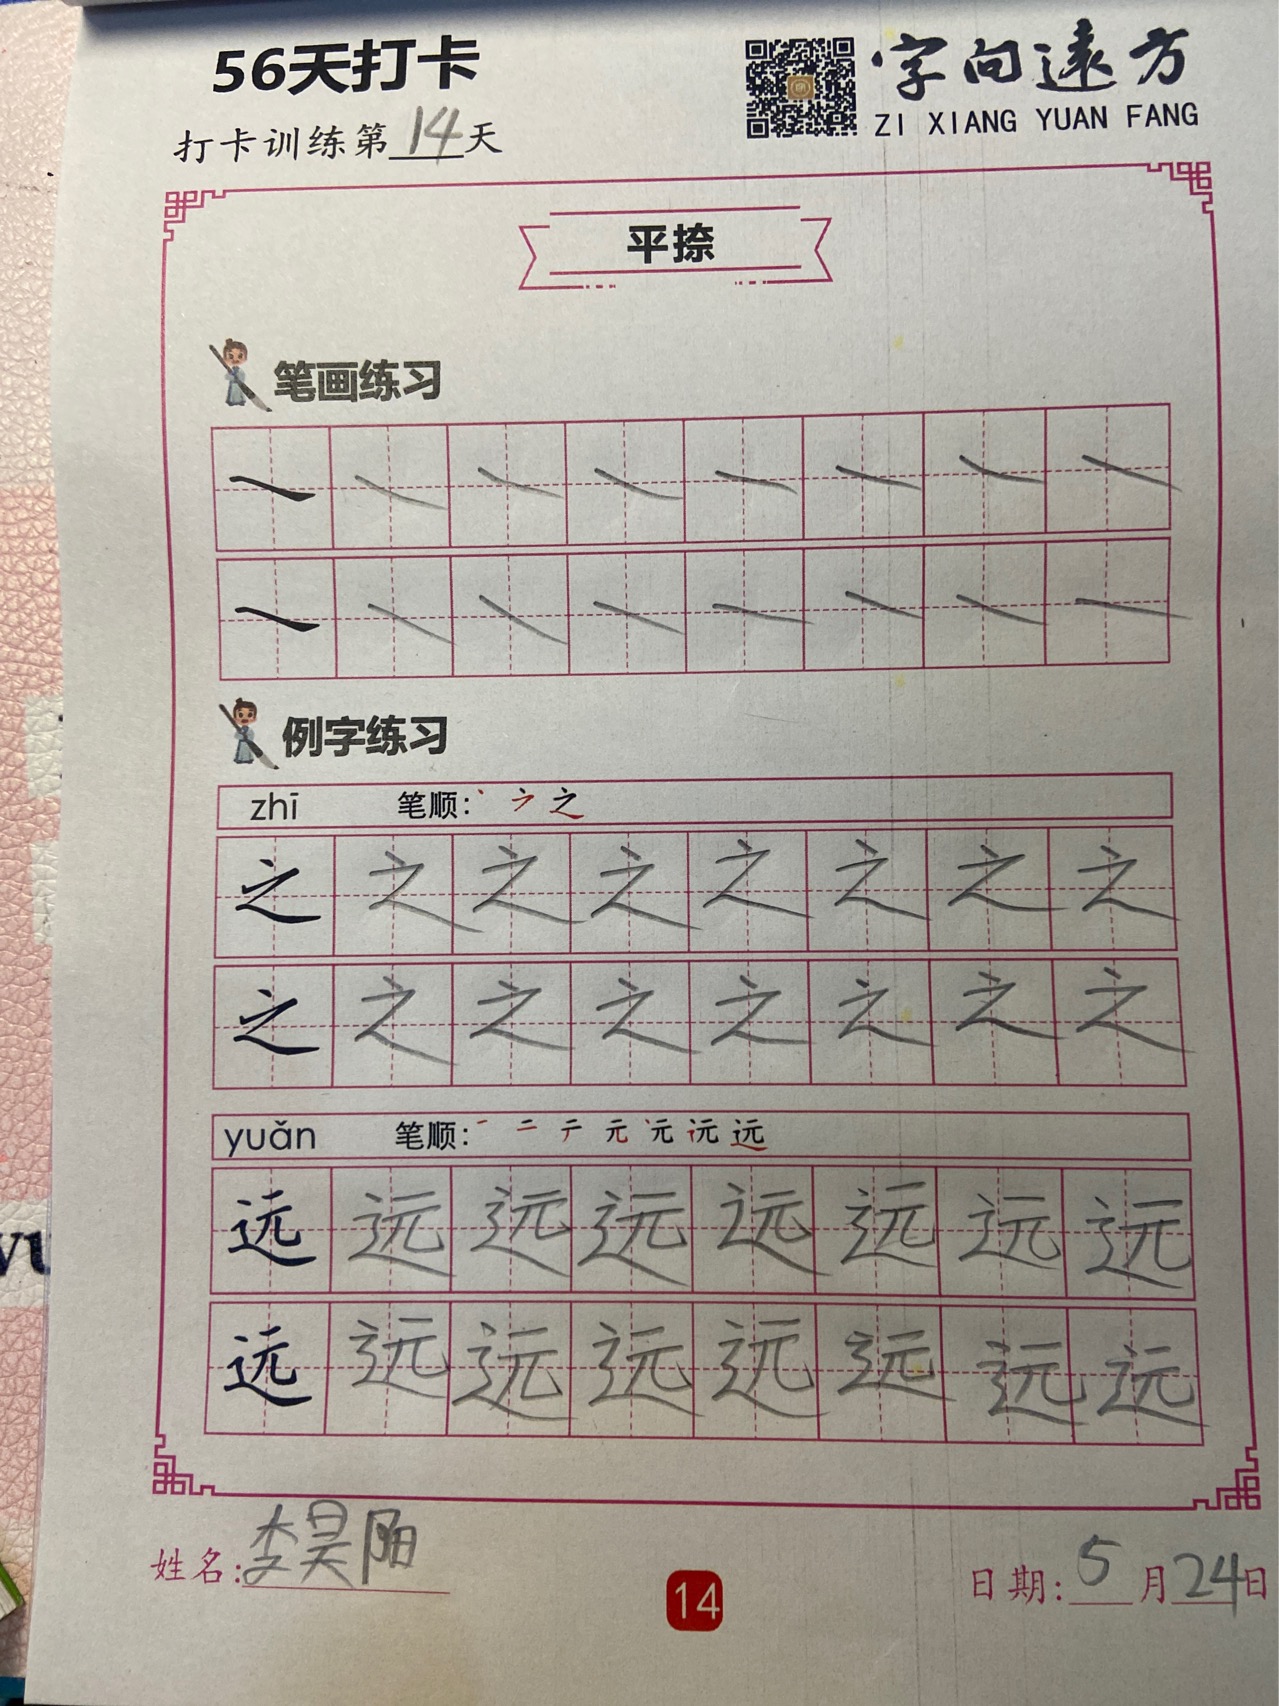 56天打卡
字向遠方
ZI XIANG YUAN FANG
打卡训练第14天
平捺
笔画练习
例字练习
zhī 笔顺: 丶 ㇇ 之
之 之 之 之 之 之 之 之
之 之 之 之 之 之 之 之
yuǎn 笔顺: 一 二 テ 元 元 远 远
远 远 远 远 远 远 远 远
远 远 远 远 远 远 远 远
姓名:李昊阳
14
日期:5月24日